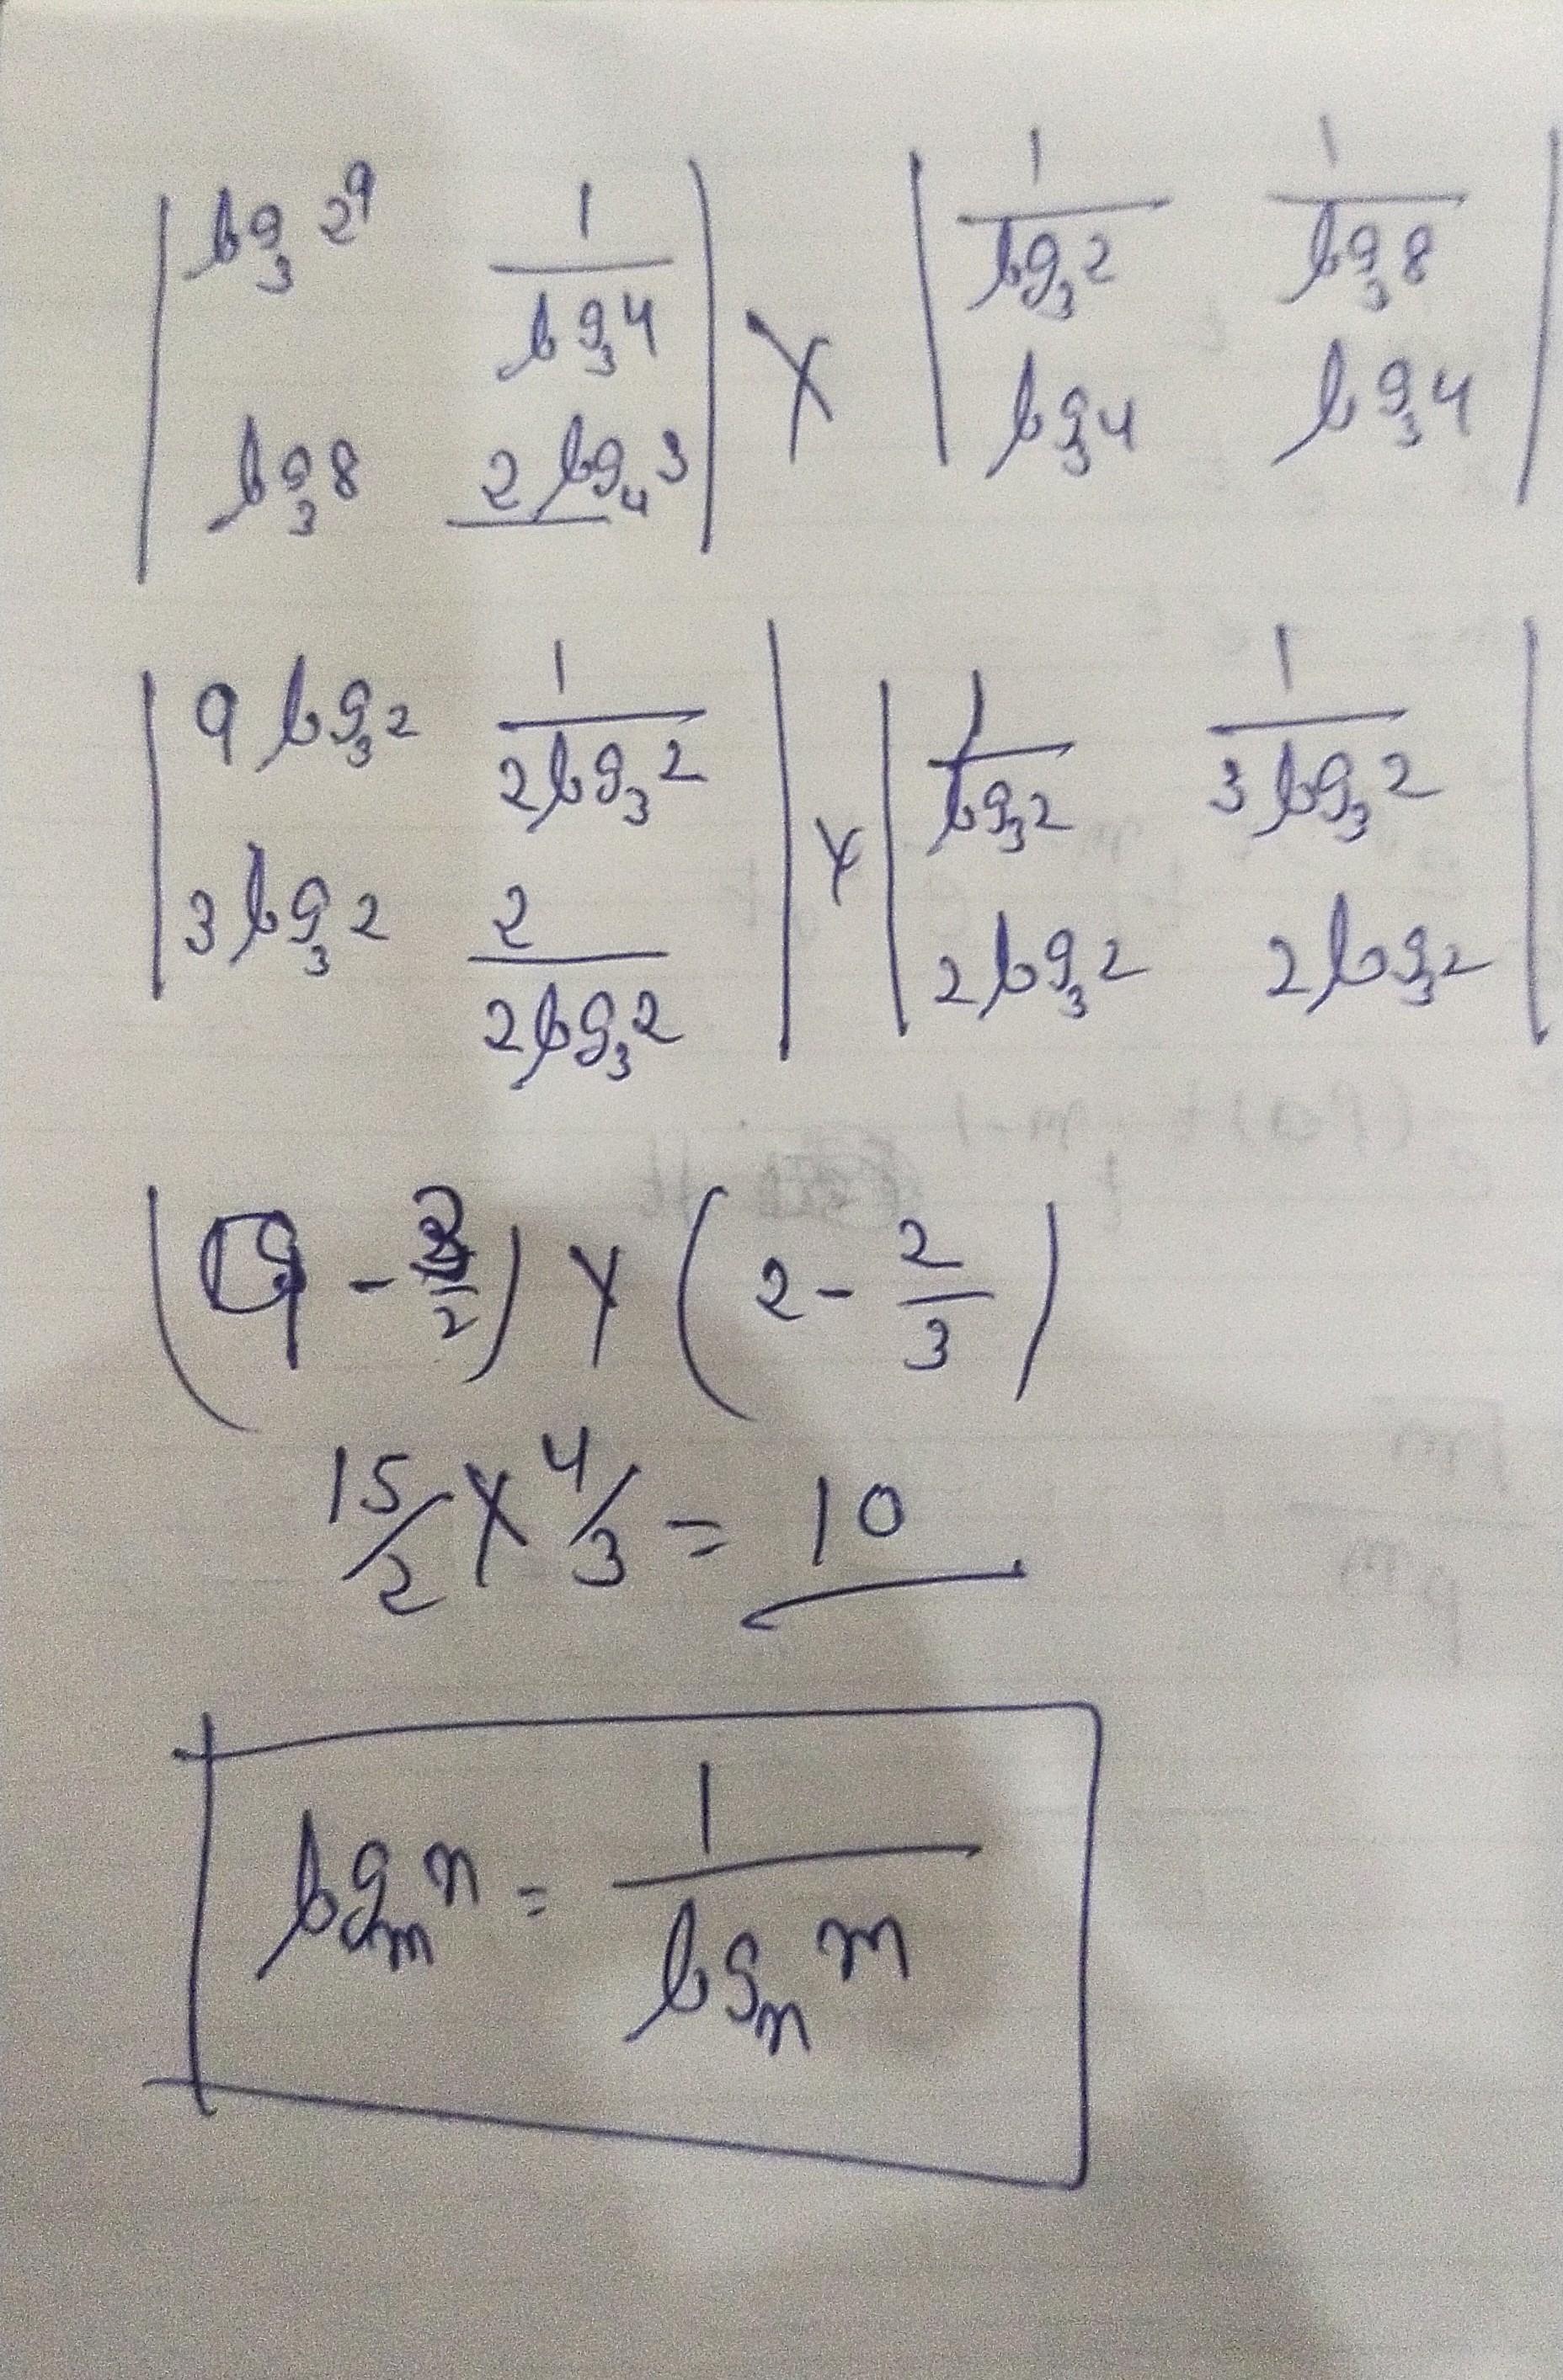 | log₃ 2⁹  1/log₃ 4 | × | 1/log₃ 2  1/log₃ 8 |
| log₃ 8  2 log₄ 3 |   | log₃ 4  log₃ 4 |
| 9 log₃ 2  1/(2 log₃ 2) | × | 1/log₃ 2  1/(3 log₃ 2) |
| 3 log₃ 2  2/(2 log₃ 2) |   | 2 log₃ 2  2 log₃ 2 |
(9 - 3/2) × (2 - 2/3)
15/2 × 4/3 = 10
logₘ n = 1/logₙ m